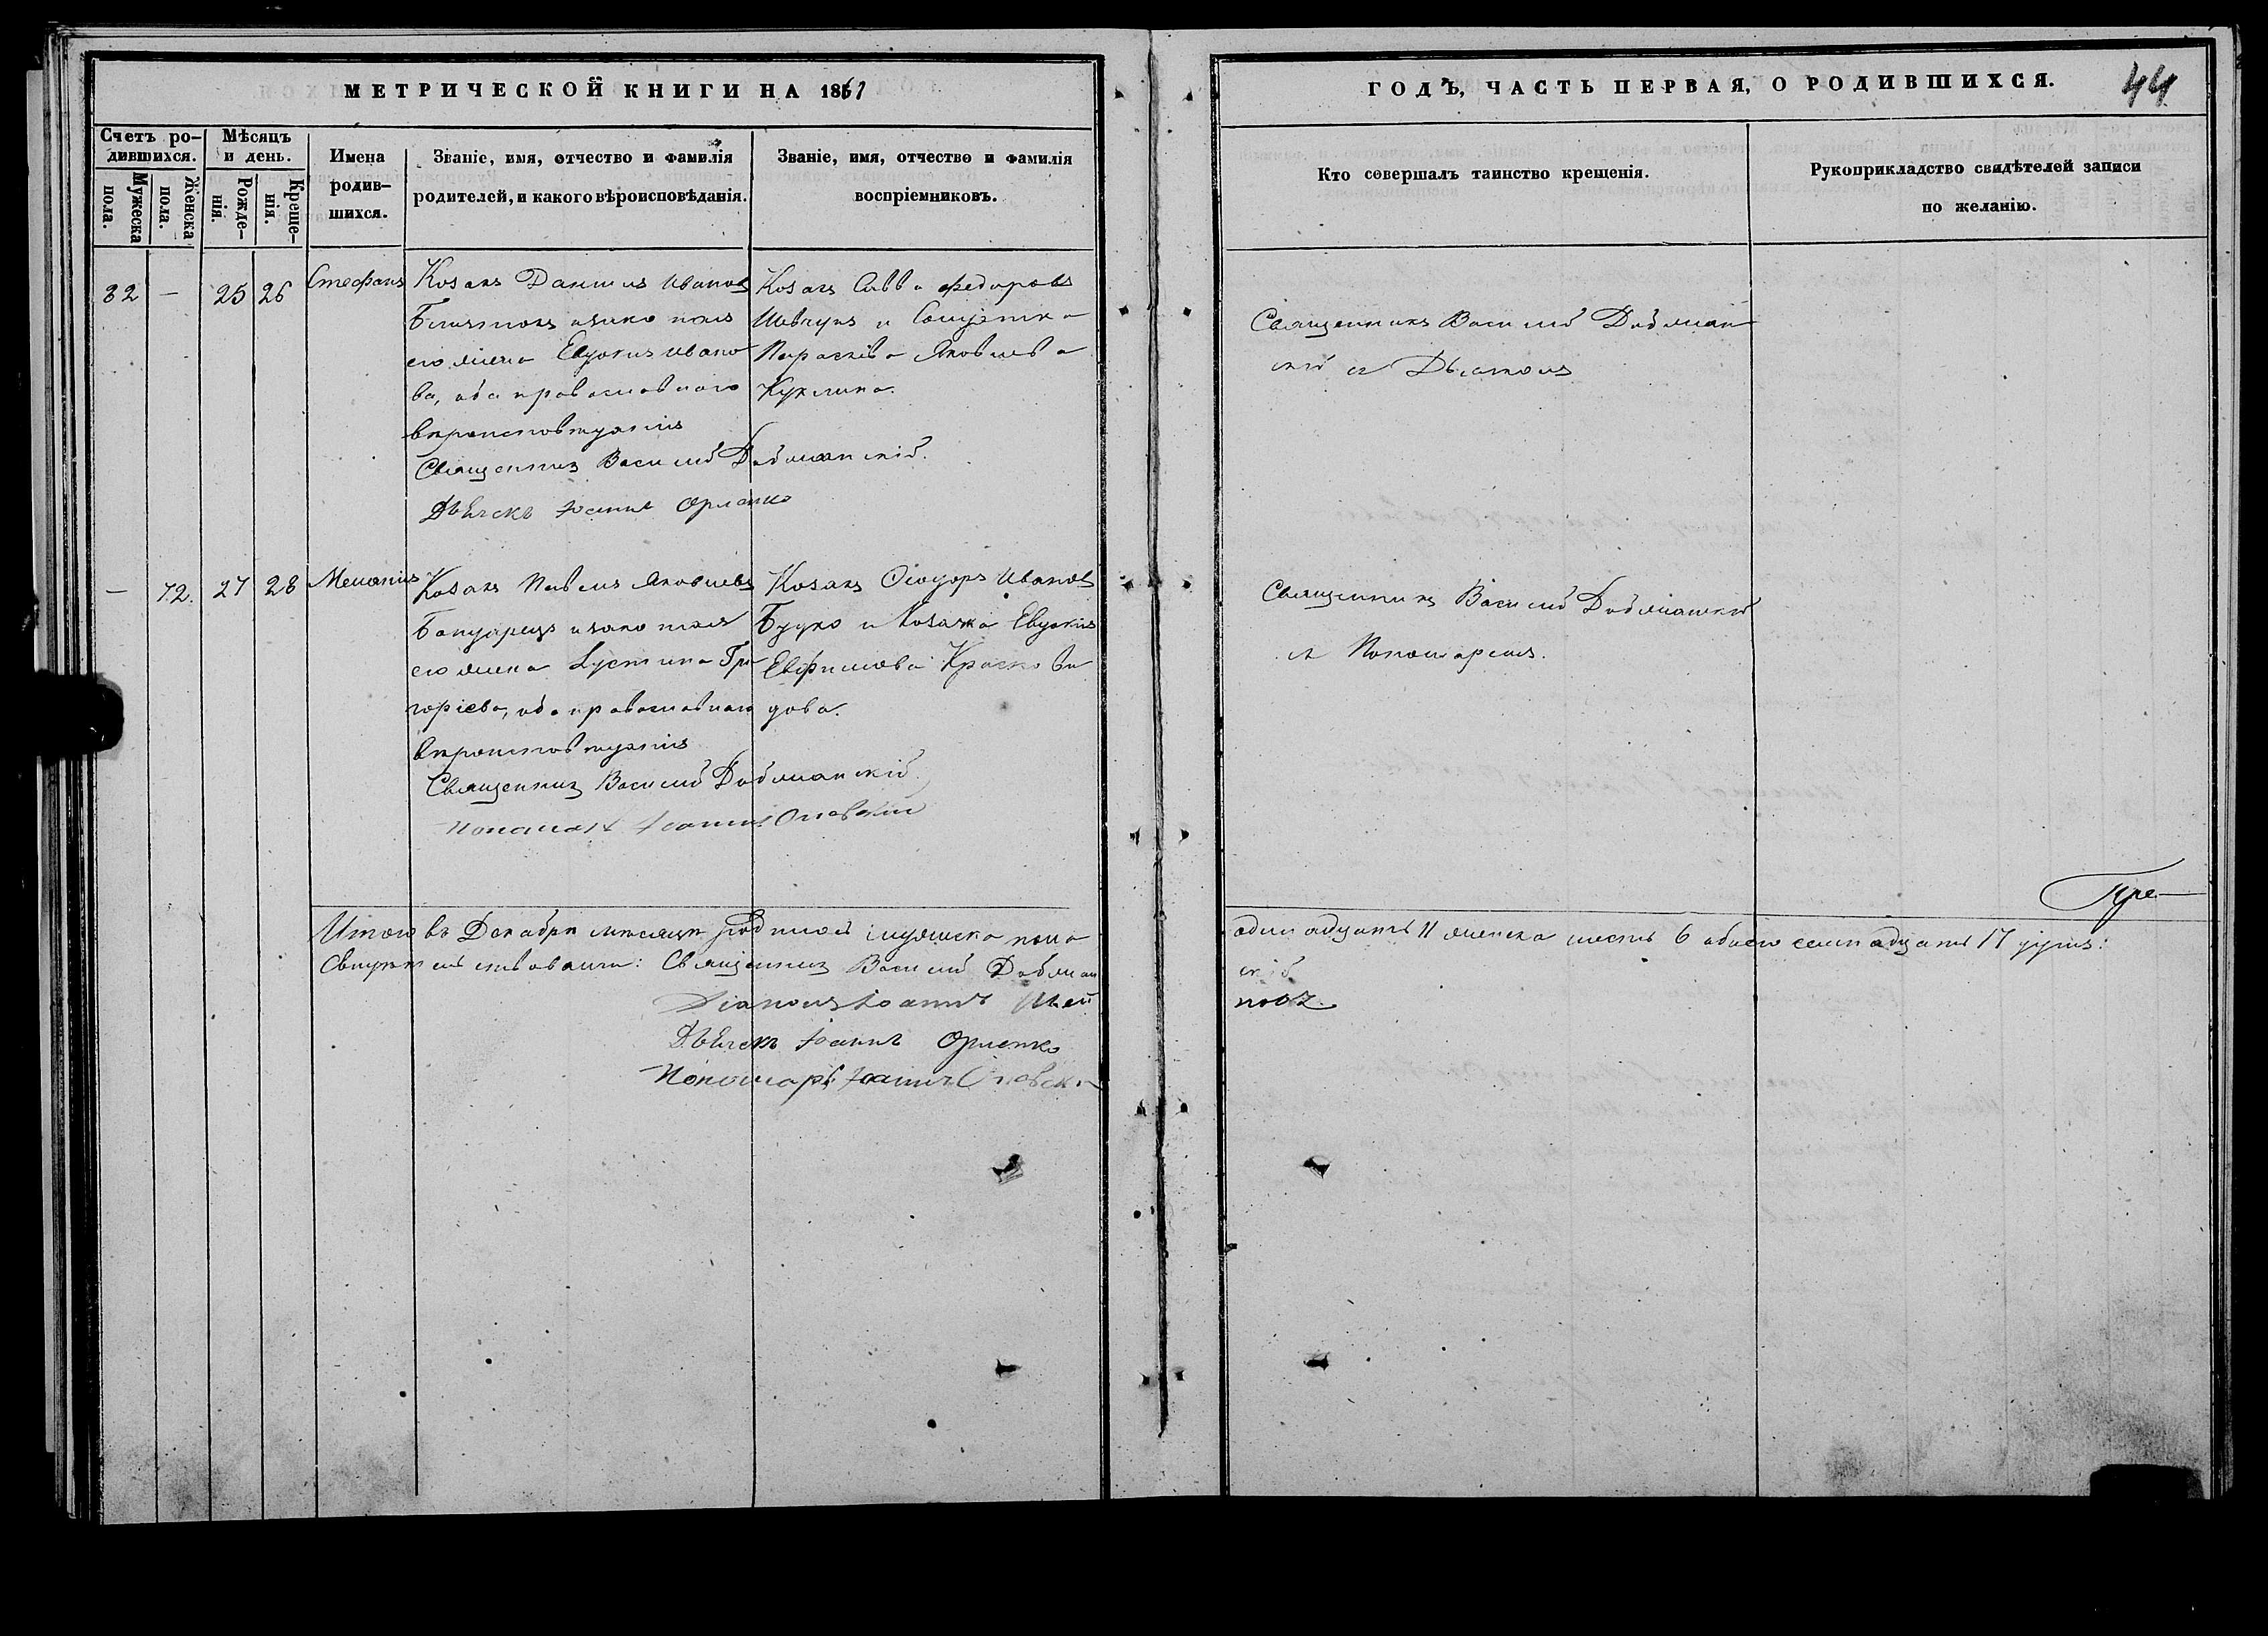 МЕТРИЧЕСКОЙ КНИГИ НА 1861
Счетъ родившихся.
Мужеска пола.
Женска пола.
Мѣсяцъ и день.
Рожденія.
Крещенія.
Имена родившихся.
Званіе, имя, отчество и фамилія
родителей, и какого вѣроисповѣданія.
Званіе, имя, отчество и фамилія
воспріемниковъ.
82 — 25 26 Стефанъ
Козакъ Даніилъ Ивановъ
и законная
его жена Евдокія Ивано
ва, оба православнаго
вѣроисповѣданія
Козакъ Савва Федоровъ
Шевчукъ и
Параскева Яковлева
Священникъ Василій
Дьячекъ Іоаннъ Орленко
— 72. 27 28 Меланія
Козакъ Павелъ Яковлевъ
Бондарец и законная
его жена Іустина Гри
горіева, оба православнаго
вѣроисповѣданія
Козакъ Ѳеодоръ Ивановъ
Будко и Козачка Евдокія
Евфимова
Священникъ Василій
Пономарь Іоаннъ
Итого въ Декабрѣ мѣсяцѣ родилось мужеска пола
Свидѣтельствовали: Священникъ Василій
Діаконъ Іоаннъ
Дьячекъ Іоаннъ Орленко
Пономарь Іоаннъ
ГОДЪ, ЧАСТЬ ПЕРВАЯ, О РОДИВШИХСЯ.
44
Кто совершалъ таинство крещенія.
Рукоприкладство свидѣтелей записи
по желанію.
Священникъ Василій
скій съ Дьячкомъ
Священникъ Василій
съ Пономаремъ.
одинадцать 11 женска шесть 6 обоего семнадцать 17 душъ:
скій
повъ